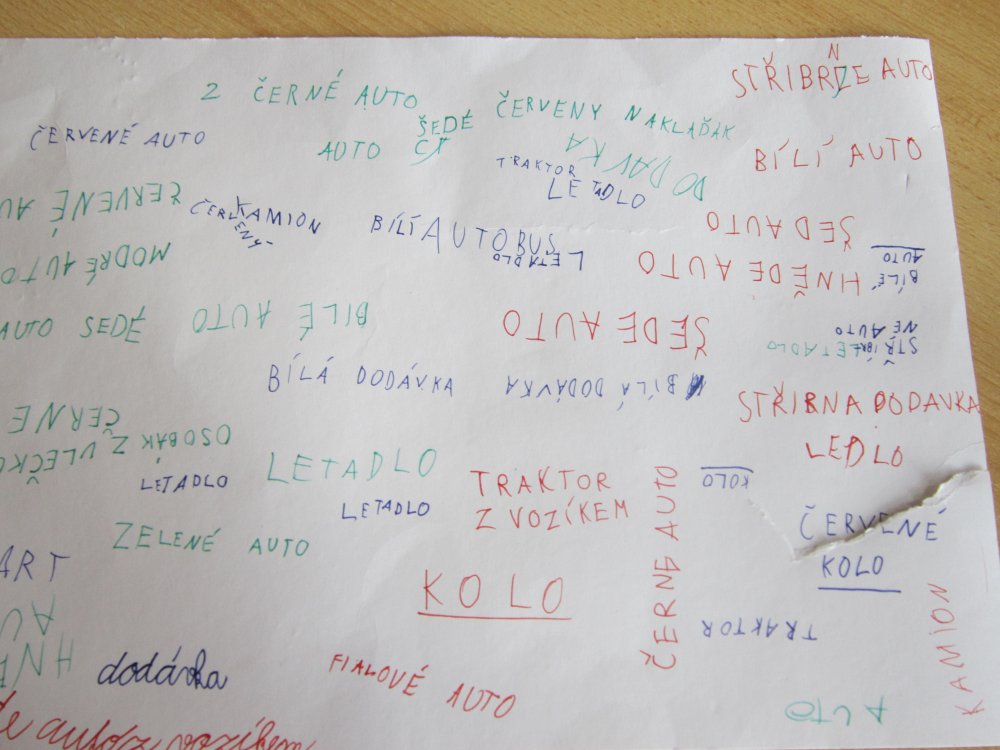 STŘIBRNE AUTO
2 ČERNÉ AUTO
ČERVENY NAKLAĎAK
ŠEDÉ
AUTO
ČERVENÉ AUTO
BÍLÍ AUTO
DODAVKA
TRAKTOR
LETADLO
ČERVENÉ AU
ČERVENY KAMION
BÍLÍ AUTOBUS
LETADLO
ŠED AUTO
BÍLÉ
AUTO
HNĚDE AUTO
MODRÉ AUTO
AUTO SEDÉ
BILÉ AUTO
ŠEDE AUTO
STŘIBRE
NÉ AUTO
LETADLO
BÍLÁ DODÁVKA
BÍLÁ DODÁVKA
STŘIBNA DODAVKA
ČERNE
OSOBÁK
Z VLEČKO
LETADLO
LETADLO
LETADLO
TRAKTOR
Z VOZÍKEM
ČERNE AUTO
KOLO
LEDLO
ČERVENÉ
KOLO
ZELENÉ AUTO
ART
KOLO
TRAKTOR
KAMION
AU
HNĚ
dodávka
FIALOVÉ AUTO
AUTO
de auto z vozíkem